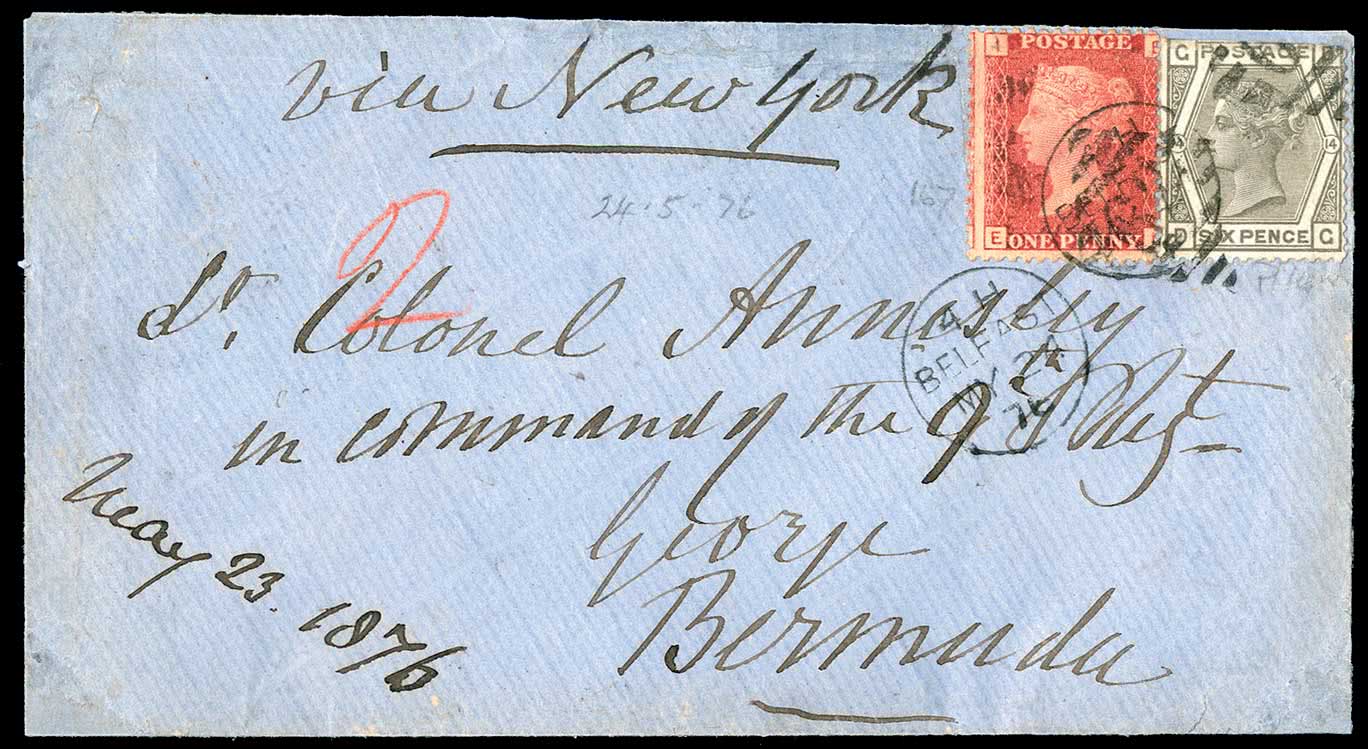 via New York
POSTAGE
ONE PENNY
E
G POSTAGE
14
D SIX PENCE G
24·5·76
167
2
Lt. Colonel Annesley
in command of the 9th Regt
George
Bermuda
May 23. 1876
4 H
BELFAST
MY 24
76